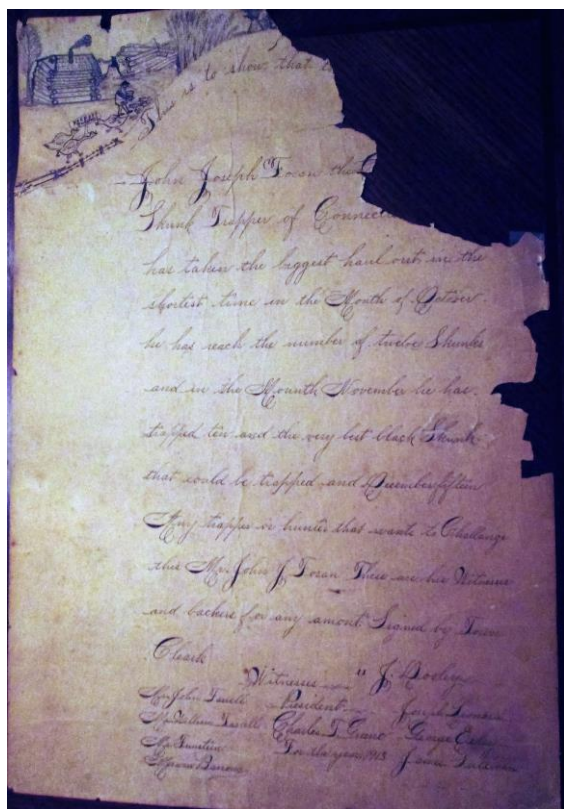 This is to show that
John Joseph Toran the
Skunk Trapper of Connect
has taken the biggest haul out in the
shortest time in the Month of October.
he has reach the number of twelve Skunks
and in the Mounth November he has.
trapped ten and the very best black Skunk
that could be trapped and December fifteen
Any trapper or hunter that wants to Challange
this Mr. John J Toran These are his Witnesses
and backers for any amont Signed by Town
Cleark
Witnesses " J.
Mr John President Joseph
Mr William Charles T. George
Mr For the year 1913 James